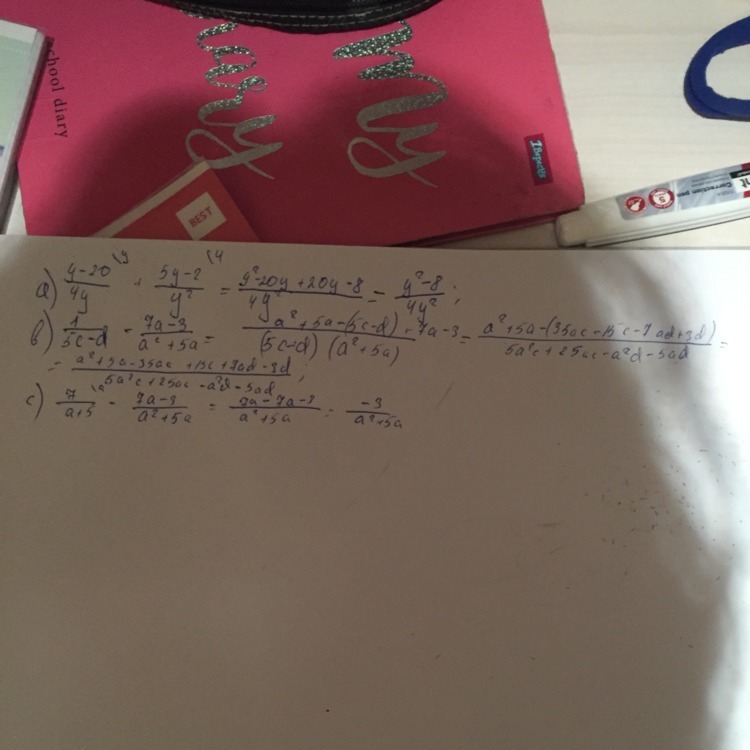 school diary
my
BEST
5
Correction pen
a) (y-20)/4y \y + (5y-2)/y² \4 = (y²-20y+20y-8)/4y² = (y²-8)/4y² ;
b) 1/(5c-d) - (7a-3)/(a²+5a) = (a²+5a-(5c-d)·7a-3)/((5c-d)(a²+5a)) = (a²+5a-(35ac-15c-7ad+3d))/(5a²c+25ac-a²d-5ad) =
= (a²+5a-35ac+15c+7ad-3d)/(5a²c+25ac-a²d-5ad) ;
c) 7/(a+5) \a - (7a-3)/(a²+5a) = (7a-7a-3)/(a²+5a) = -3/(a²+5a)